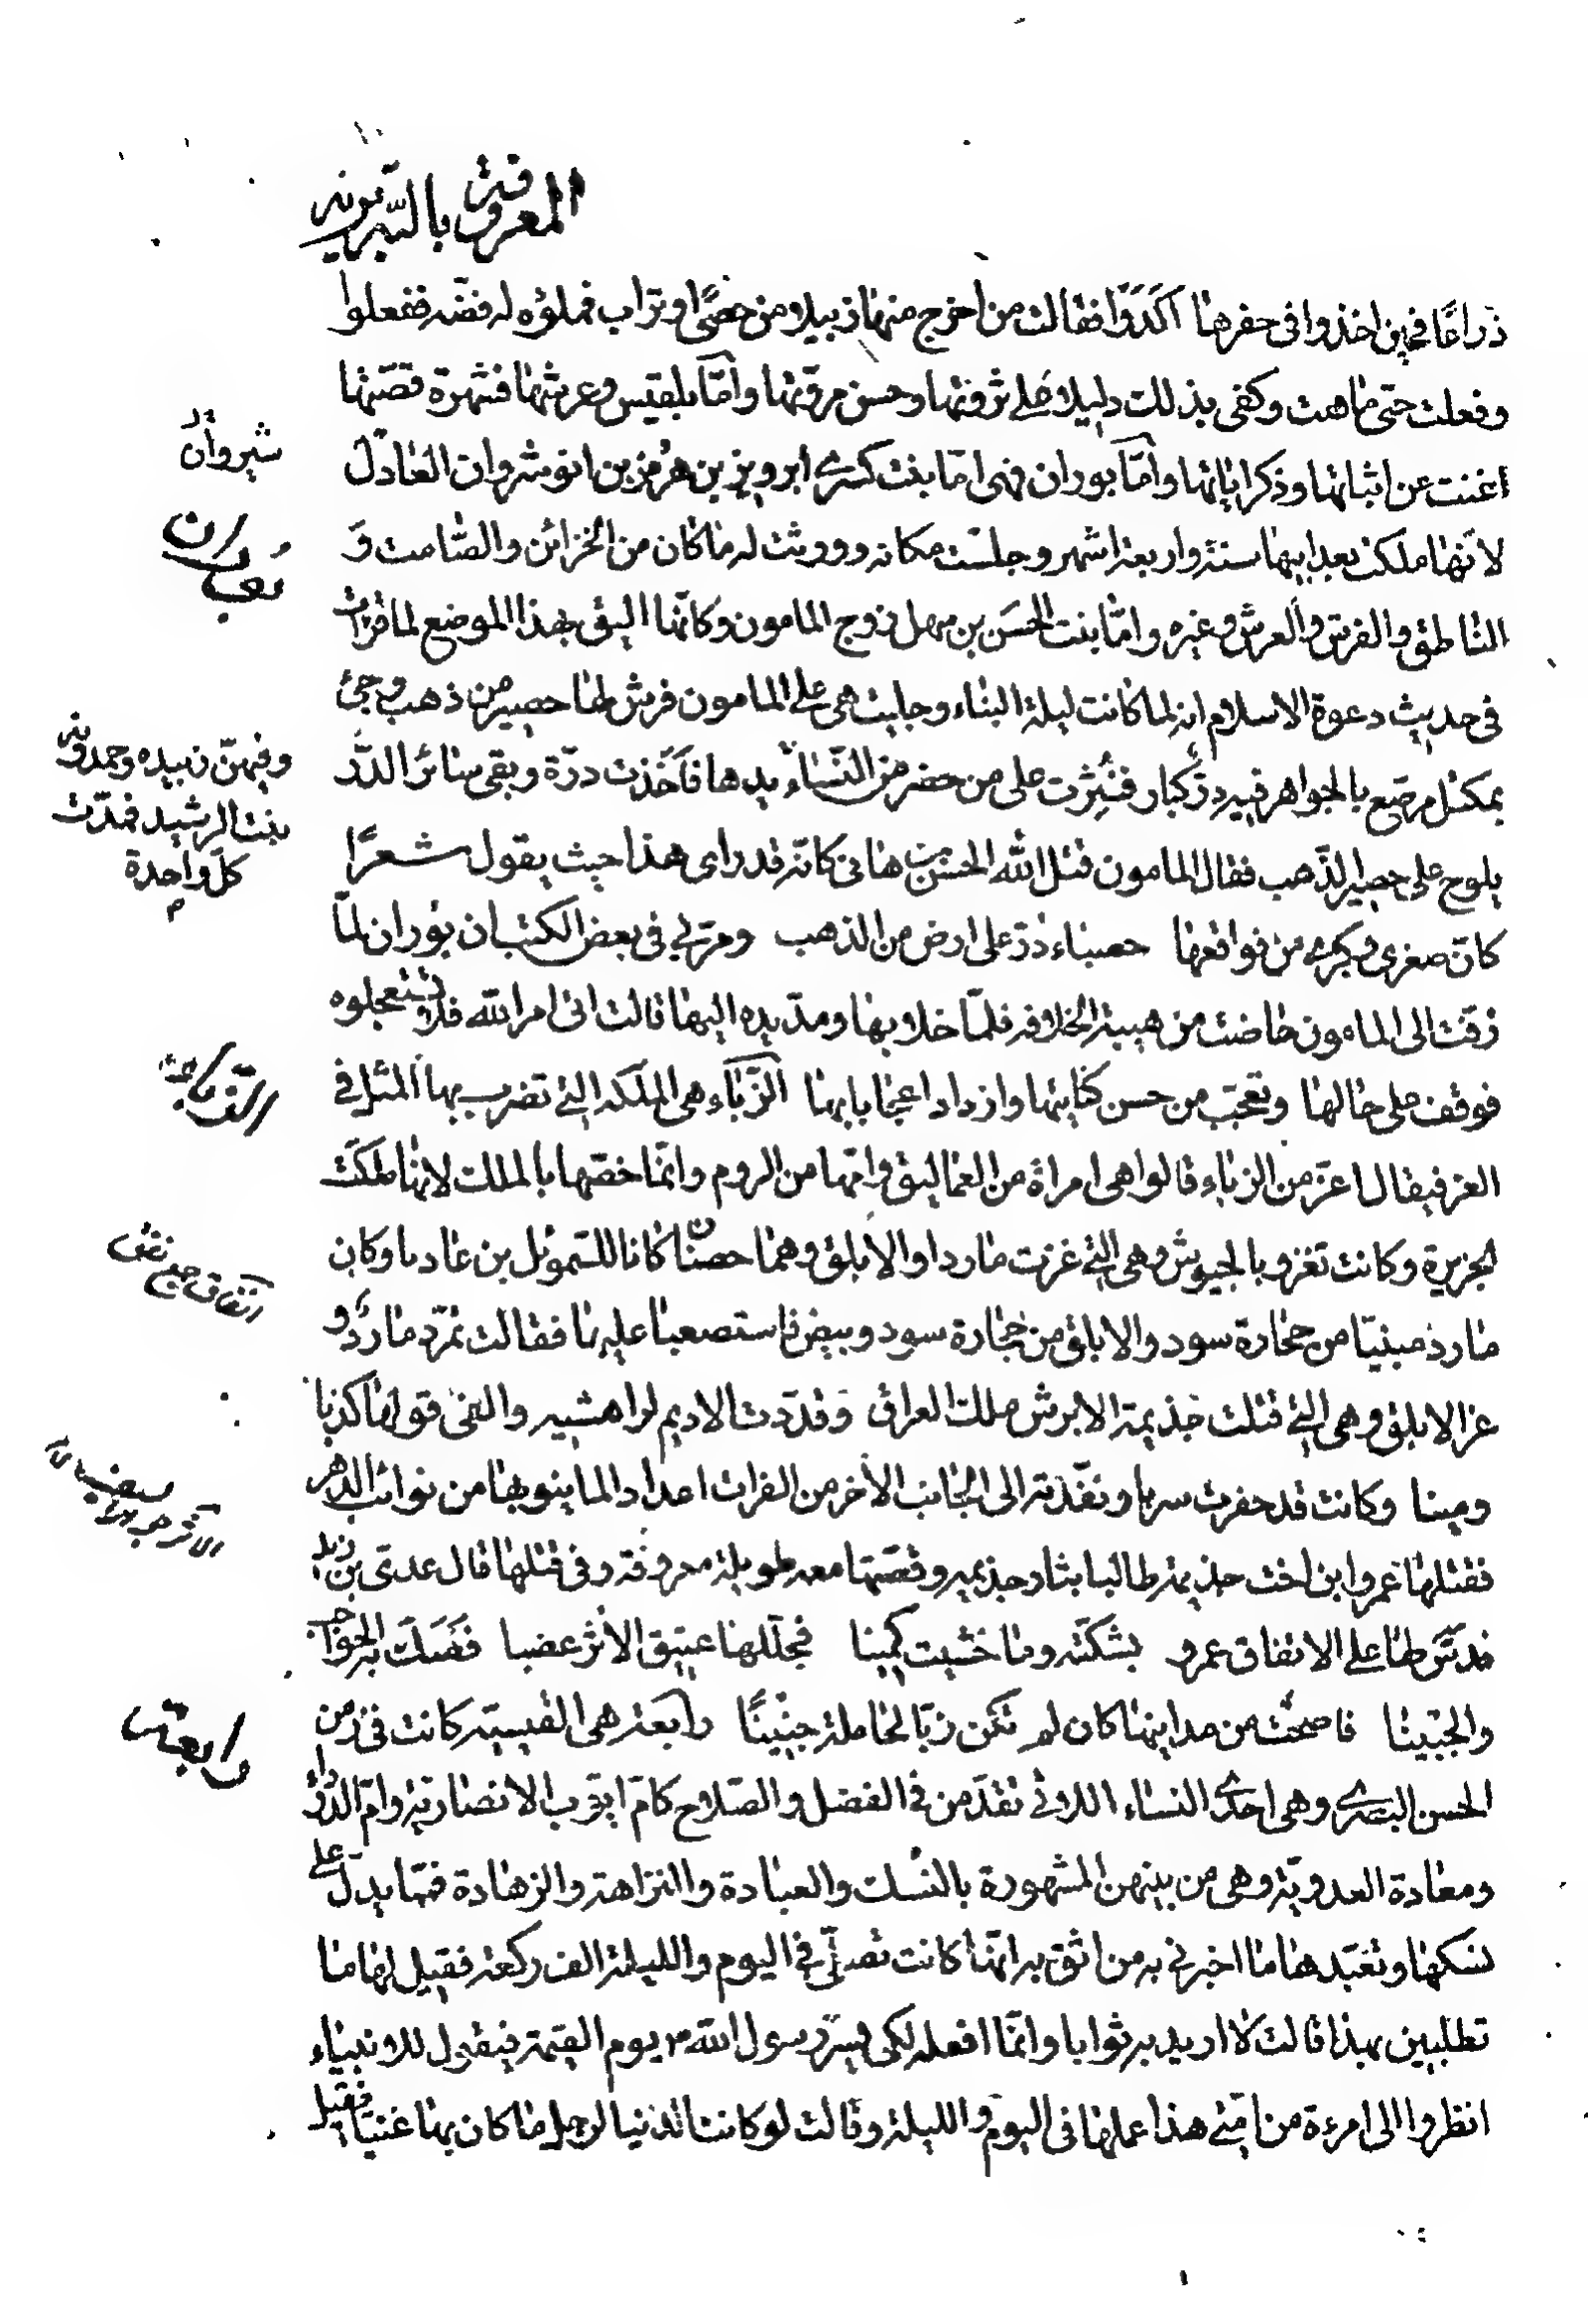 المعروفة بالتبريزيه
ذراعًا فحين اخذوا فى حفرها اكدوا فقالت من اخرج منها زبيلا من حصًى او تراب فملؤه له فضّه ففعلوا
وفعلت حتى ماهت وكفى بذلك دليلا على ثروتها وحسن مروتها وامّا بلقيس وعرشها فشهرة قصّتها
اغنت عن اثباتها وذكر اياتها وامّا بوران فهى امّا بنت كسرى ابرويز بن هرمز بن انوشروان العادل
لانّها ملكت بعد ابيها سنة واربعة اشهر وجلست مكانه وورثت له ما كان من الخزائن والصّامت وَ
النّاطق والفرش والعرش وغيره وامّا بنت الحسَن بن سهل زوج المامون وكانّها اليق بهذا الموضع لما قرات
فى حديث دعوة الاسلام انه لما كانت ليلة البناء وجليت هى على المامون فرش لها حصير من ذهب وجئ
بمكتل مرصّع بالجواهر فيه درّ كبار فنُثِرت على من حضر من النّساء يدها فاَخَذت درّة وبقى سائر الدّر
يلوح على حصير الذّهب فقال المامون قتل الله الحسن بن هانى كانّه قد راى هذا حيث يقول شعرًا
كانّ صغرى وكبرى من فواقعها حصباء درّ على ارض من الذهب ومرّ بى فى بعض الكتب ان بوران لمّا
زفّت الى المامون حاضت من هيبة الخلافه فلمّا خلا بها ومدّ يده اليها قالت اتى امر الله فلا تستعجلوه
فوقف على حالها وتعجّب من حسن كنايتها وازداد اعجابا بها الزّبّاء هى الملكه التى تضرب بها المثل فى
العز فيقال اعزّ من الزباء قالوا هى امراة من العماليق وامّها من الروم وانّما خصّها بالملك لانها ملكت
الجزيرة وكانت تغزو بالجيوش وهى التى غزت ماردا والابلق وهما حصنان كانا للسّموئل بن عاديا وكان
مارد مبنيّا من حجارة سود والابلق من حجارة سود وبيض فاستصعبا عليها فقالت تمرّد مارد و
عز الابلق وهى التى قتلت جذيمة الابرش ملك العراق وقدّدت الاديم لراهشيه والفى قولها كذبا
ومينا وكانت قد حفرت سربا ونفّذته الى الجانب الاخر من الفرات اعدادا لما ينوبها من نوائب الدهر
فقتلها عمرو ابن اخت جذيمة طالبا بثار جذيمه وقصّتها معه طويلة معروفة وفى قتلها قال عدى بن زيد
فدسّ لها على الانفاق عمرو بشكّته وما خشيت كمينا فجلّلها عتيق الاثر عضبا فَصَكّت به الحواجب
والجبينا فاضحت من مداينها كان لم تكن زبّا لحاملة جنينًا رابعة هى القيسيّة كانت فى زمن
الحسن البصرى وهى احدى النساء اللاتى تقدّمن فى الفضل والصّلاح كامّ ايّوب الانصاريّة وامّ الدّرداء
ومعاذة العدويّة وهى من بينهن المشهورة بالنّسك والعبادة والنزاهة والزهادة فمّما يدلّ على
نسكها وتعبّدها ما اخبرنى به من اثق به انّها كانت تصلّى فى اليوم والليلة الف ركعة فقيل لها ما
تطلبين بهذا قالت لا اريد به ثوابا وانّما افعله لكى يسرّ رسول الله ص يوم القيمة فيقول للانبياء
انظروا الى امرءة من امّتى هذا عملها فى اليوم والليلة وقالت لو كانت الدنيا لرجل ما كان بها غنيّا فقيل
شيروان
بوران
وفيهنّ زبيده وحمدونه
بنت الرشيد فمدّت
كلّ واحدة
م
الزّبّاء
انفاق جمع نفق
رابعة